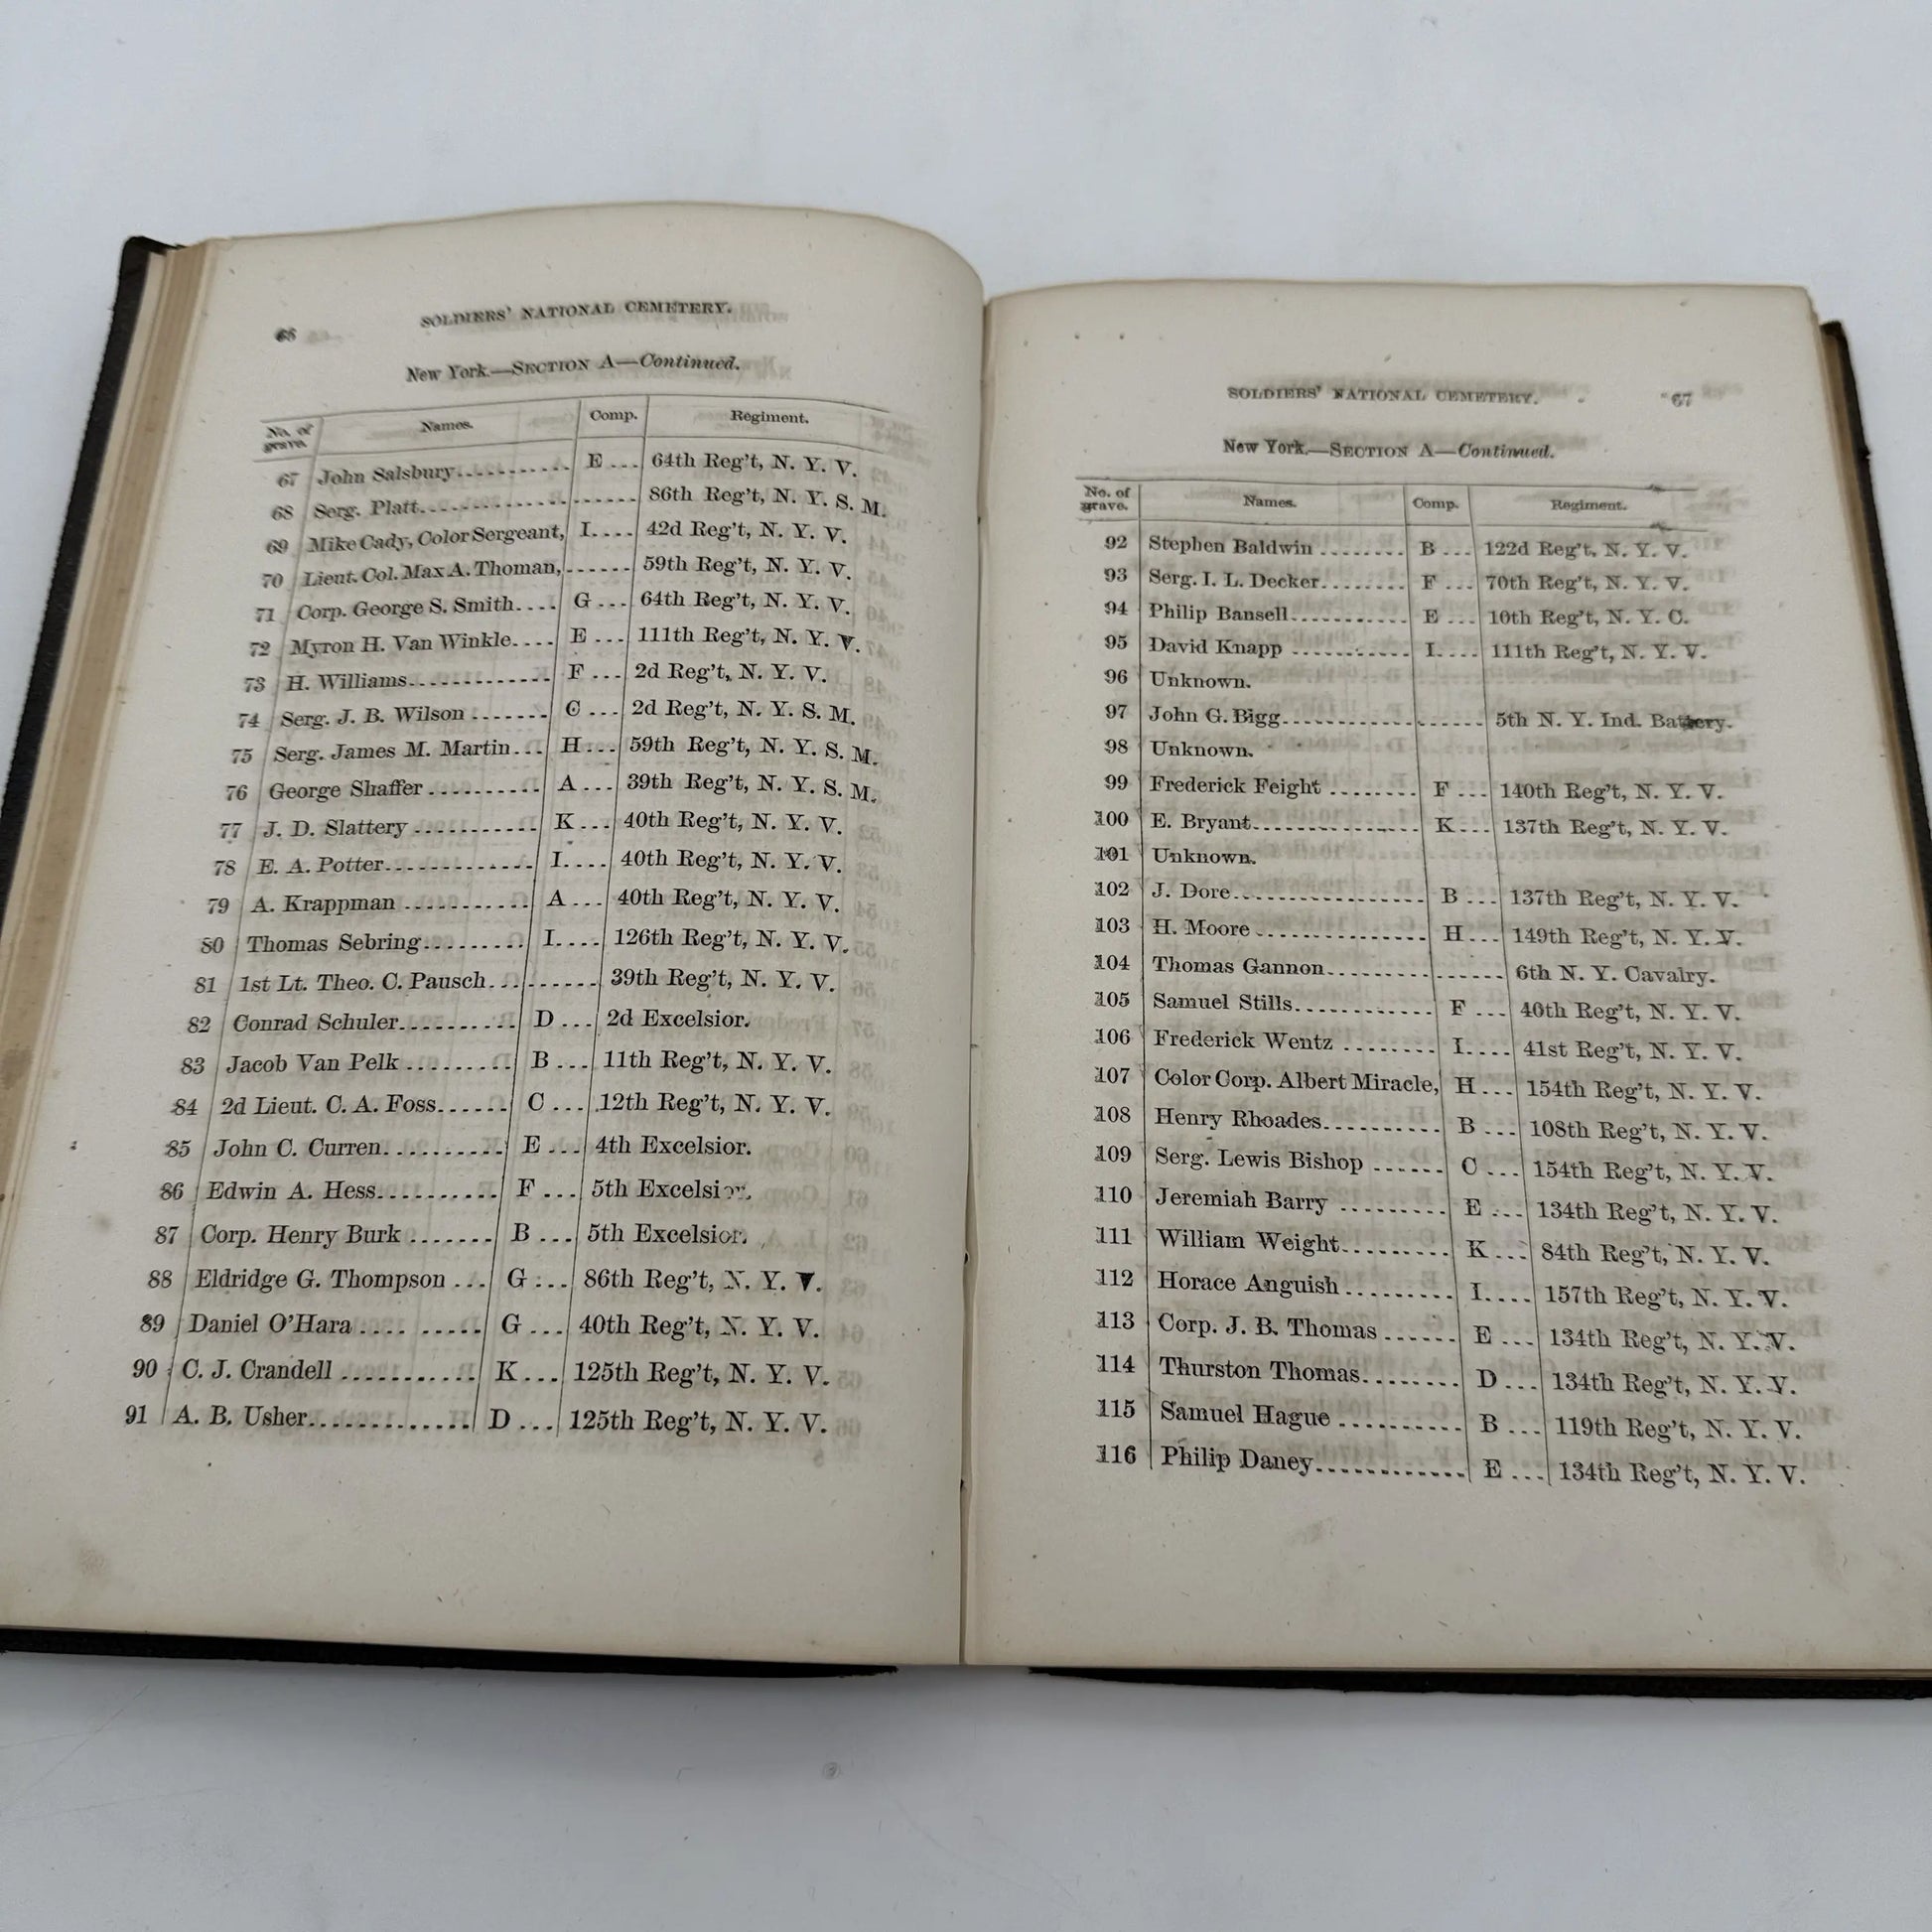 66 SOLDIERS' NATIONAL CEMETERY.
New York.—SECTION A—Continued.
No. of grave. Names. Comp. Regiment.
67 John Salsbury........... E ... 64th Reg't, N. Y. V.
68 Serg. Platt..................... 86th Reg't, N. Y. S. M.
69 Mike Cady, Color Sergeant, I.... 42d Reg't, N. Y. V.
70 Lieut. Col. Max A. Thoman, ...... 59th Reg't, N. Y. V.
71 Corp. George S. Smith.... G ... 64th Reg't, N. Y. V.
72 Myron H. Van Winkle.... E ... 111th Reg't, N. Y. V.
73 H. Williams............. F ... 2d Reg't, N. Y. V.
74 Serg. J. B. Wilson ....... C ... 2d Reg't, N. Y. S. M.
75 Serg. James M. Martin... H... 59th Reg't, N. Y. S. M.
76 George Shaffer .......... A ... 39th Reg't, N. Y. S. M.
77 J. D. Slattery ........... K... 40th Reg't, N. Y. V.
78 E. A. Potter............. I.... 40th Reg't, N. Y. V.
79 A. Krappman ........... A ... 40th Reg't, N. Y. V.
80 Thomas Sebring......... I.... 126th Reg't, N. Y. V.
81 1st Lt. Theo. C. Pausch... ...... 39th Reg't, N. Y. V.
82 Conrad Schuler.......... D ... 2d Excelsior.
83 Jacob Van Pelk ......... B ... 11th Reg't, N. Y. V.
84 2d Lieut. C. A. Foss...... C ... 12th Reg't, N. Y. V.
85 John C. Curren.......... E ... 4th Excelsior.
86 Edwin A. Hess.......... F ... 5th Excelsior.
87 Corp. Henry Burk ....... B ... 5th Excelsior.
88 Eldridge G. Thompson ... G ... 86th Reg't, N. Y. V.
89 Daniel O'Hara .... ..... G ... 40th Reg't, N. Y. V.
90 C. J. Crandell ........... K... 125th Reg't, N. Y. V.
91 A. B. Usher............. D ... 125th Reg't, N. Y. V.
SOLDIERS' NATIONAL CEMETERY. 67
New York.—SECTION A—Continued.
No. of grave. Names. Comp. Regiment.
92 Stephen Baldwin ........ B ... 122d Reg't, N. Y. V.
93 Serg. I. L. Decker........ F ... 70th Reg't, N. Y. V.
94 Philip Bansell........... E ... 10th Reg't, N. Y. C.
95 David Knapp ........... I.... 111th Reg't, N. Y. V.
96 Unknown.
97 John G. Bigg................... 5th N. Y. Ind. Battery.
98 Unknown.
99 Frederick Feight ........ F ... 140th Reg't, N. Y. V.
100 E. Bryant............... K... 137th Reg't, N. Y. V.
101 Unknown.
102 J. Dore................. B ... 137th Reg't, N. Y. V.
103 H. Moore ............... H... 149th Reg't, N. Y. V.
104 Thomas Gannon................ 6th N. Y. Cavalry.
105 Samuel Stills............ F ... 40th Reg't, N. Y. V.
106 Frederick Wentz ........ I.... 41st Reg't, N. Y. V.
107 Color Corp. Albert Miracle, H... 154th Reg't, N. Y. V.
108 Henry Rhoades.......... B ... 108th Reg't, N. Y. V.
109 Serg. Lewis Bishop ...... C ... 154th Reg't, N. Y. V.
110 Jeremiah Barry ......... E ... 134th Reg't, N. Y. V.
111 William Weight......... K... 84th Reg't, N. Y. V.
112 Horace Anguish ......... I.... 157th Reg't, N. Y. V.
113 Corp. J. B. Thomas ...... E ... 134th Reg't, N. Y. V.
114 Thurston Thomas........ D ... 134th Reg't, N. Y. V.
115 Samuel Hague .......... B ... 119th Reg't, N. Y. V.
116 Philip Daney............ E ... 134th Reg't, N. Y. V.